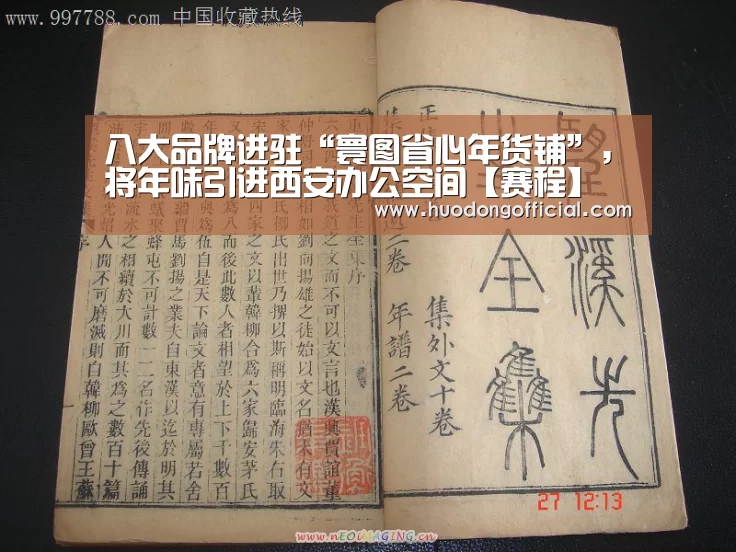 www.997788.com 中国收藏热线
八大品牌进驻“寰图省心年货铺”，
将年味引进西安办公空间【赛程】
www.huodongofficial.com
溪先
全集
集外文十卷
年譜二卷
先生全集序
之文而不可以文言也漢興賈誼董
如劉向揚雄之徒始以文名猶未有文
柳氏出世乃撰以斯稱明臨海朱右取
四家之文以輩韓柳合為六家歸安茅氏
為八而後此數人者相望於上下千數百
為伍自是天下論文者意有專屬若舍
賈馬劉揚之業夫自東漢以迄於明其
蟻聚蜂屯不可計數一二名作先後傳誦
流水之相續於大川而其為之數百十篇
人間不可磨滅則自韓柳歐曾王蘇
27 12:13
www.nEOIMAGING.cn